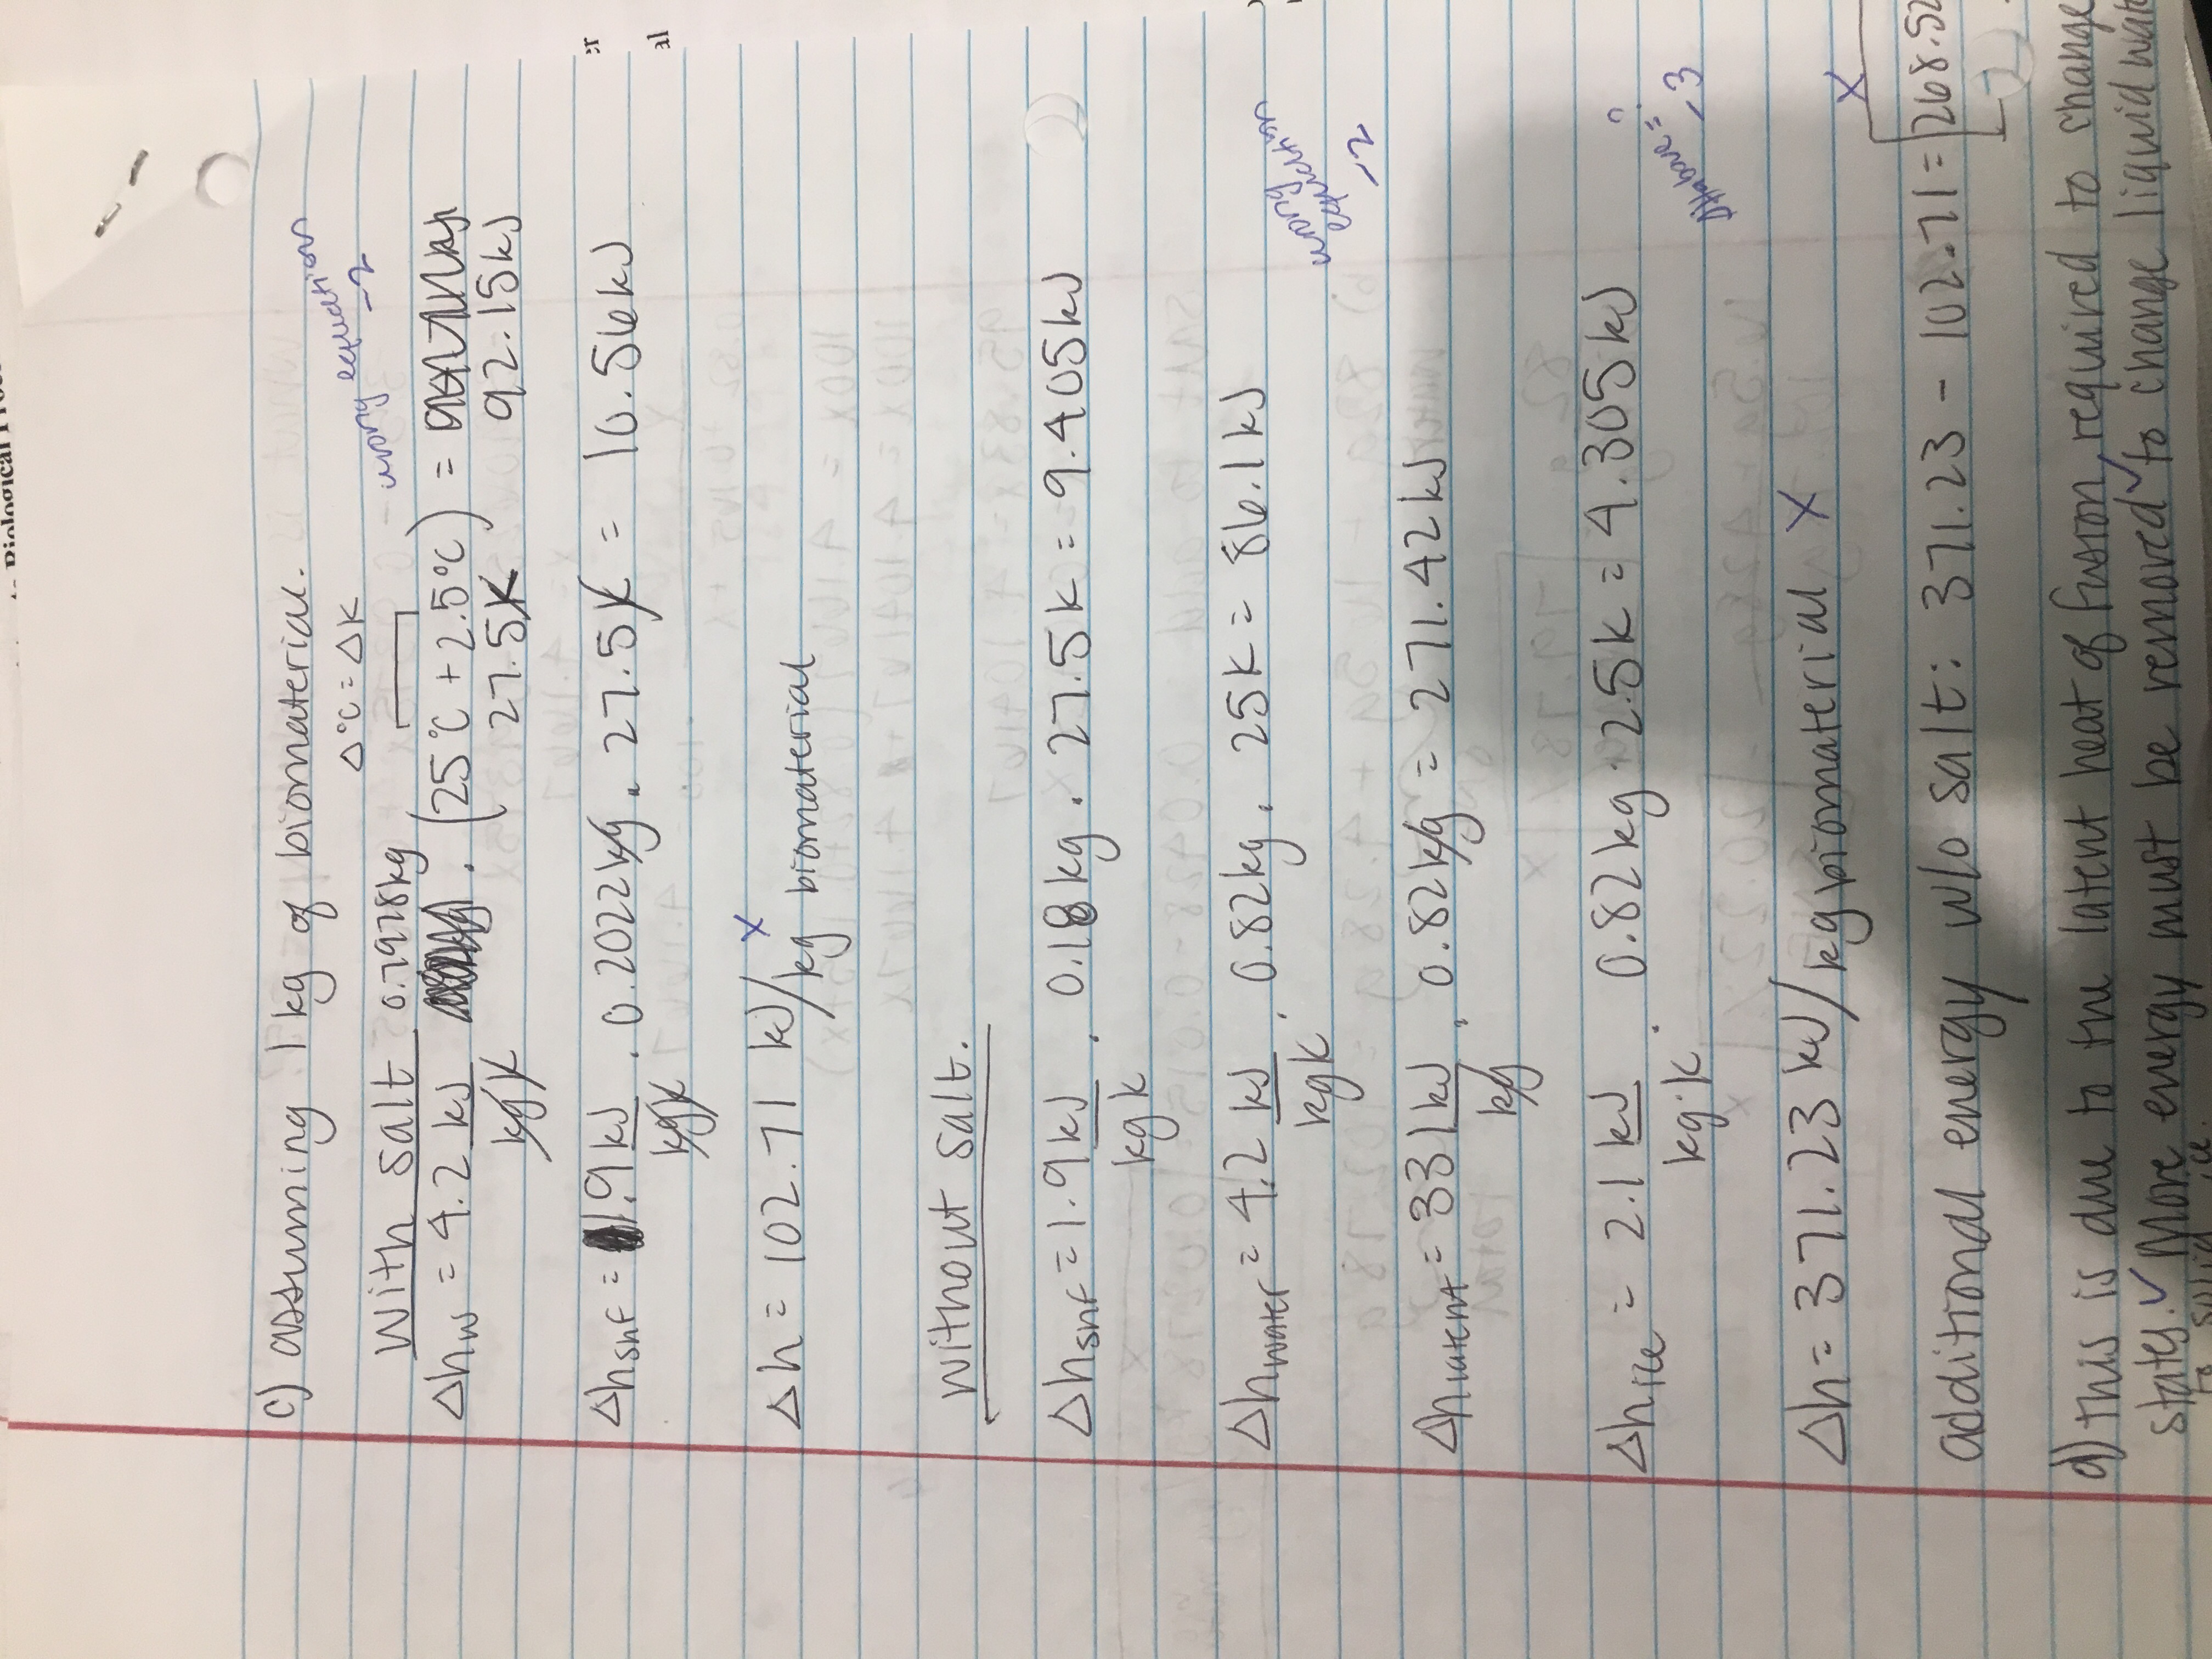 to Biological Proc
c) assuming 1 kg of biomaterial.
Δ°C = ΔK
wrong equation
-2
With salt 0.7978kg
Δhw = 4.2 kJ/kgK · (25°C + 2.5°C) =
27.5K 92.15kJ
Δhsnf = 1.9 kJ/kgK · 0.2022kg · 27.5K = 10.56kJ
er
al
Δh = 102.71 kJ/kg biomaterial
X
without salt.
Δhsnf = 1.9 kJ/kgK · 0.18kg · 27.5K = 9.405kJ
Δhwater = 4.2 kJ/kgK · 0.82kg · 25K = 86.1kJ
wrong
equation
-2
Δhlatent = 331 kJ/kg · 0.82kg = 271.42kJ
Δhice = 2.1 kJ/kg·K · 0.82kg · 2.5K = 4.305kJ
ΔHabove = ?
-3
Δh = 371.23 kJ/kg biomaterial X
X
additional energy w/o salt: 371.23 - 102.71 = 268.52
d) this is due to the latent heat of fusion, required to change
states. ✓ More energy must be removed ✓ to change liquid wat
to solid ice.